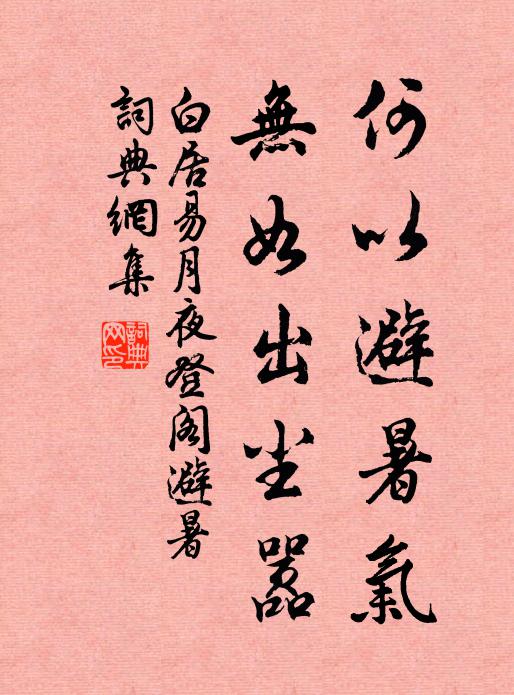 何以避暑氣
無如出塵囂
白居易月夜登阁避暑
詞典網集
詞典
网印